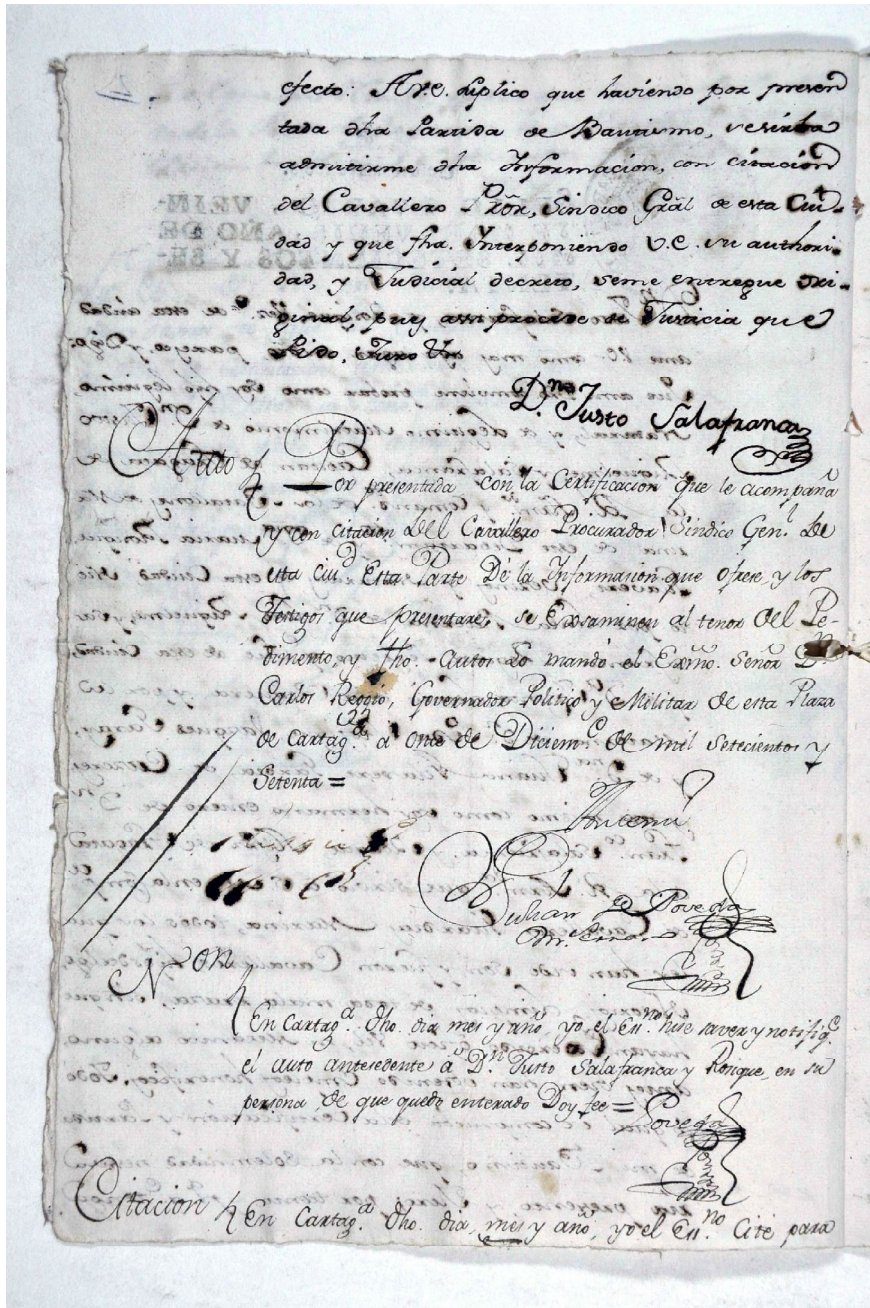 efecto: A V.e. suplico que haviendo por presen
tada dha Partida de Bautismo, se sirba
admitirme dha Informacion, con citacion
del Cavallero Pror, Sindico Gral de esta Ciu-
dad y que fha. Interponiendo V.E. su authori-
dad, y Judicial decreto, seme entregue ori-
ginal, pues assi procede de Justicia que
Pido, Juro
Dn. Justo Salafranca
Auto
Por presentada con la Certificacion que le acompaña
y con citacion del Cavallero Procurador Sindico Genl. de
esta ciud. Esta Parte De la Informacion que ofrese, y los
Testigos que presentare, se Exsaminen al tenor del Pe-
dimento, y fho. Autos Lo mandò el Exmo. Señor Dn.
Carlos Reggio, Governador Politico y Militar de esta Plaza
de Cartaga. à onze de Dicieme. de mil setecientos y
Setenta =
Antemi
Julian De Poveda
Non
En Cartaga. dho. dia mes y año, yo el Essno. hise saver y notifiqe.
el auto antesedente à Dn. Justo Salafranca y Rosique, en su
persona de que quedo enterado Doy fee = Poveda
Citacion En Cartaga. dho. dia, mes y año, yo el Essno. Citè para